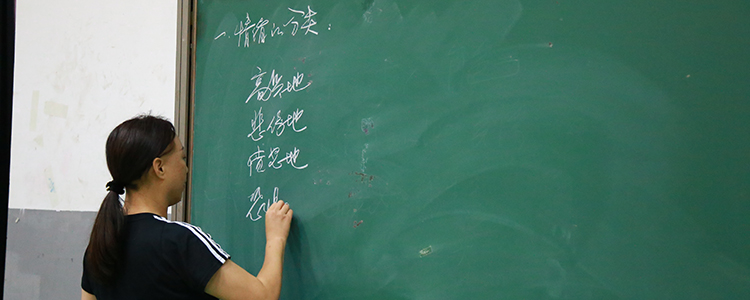 一、情绪的分类：
高兴地
悲伤地
愤怒地
恐